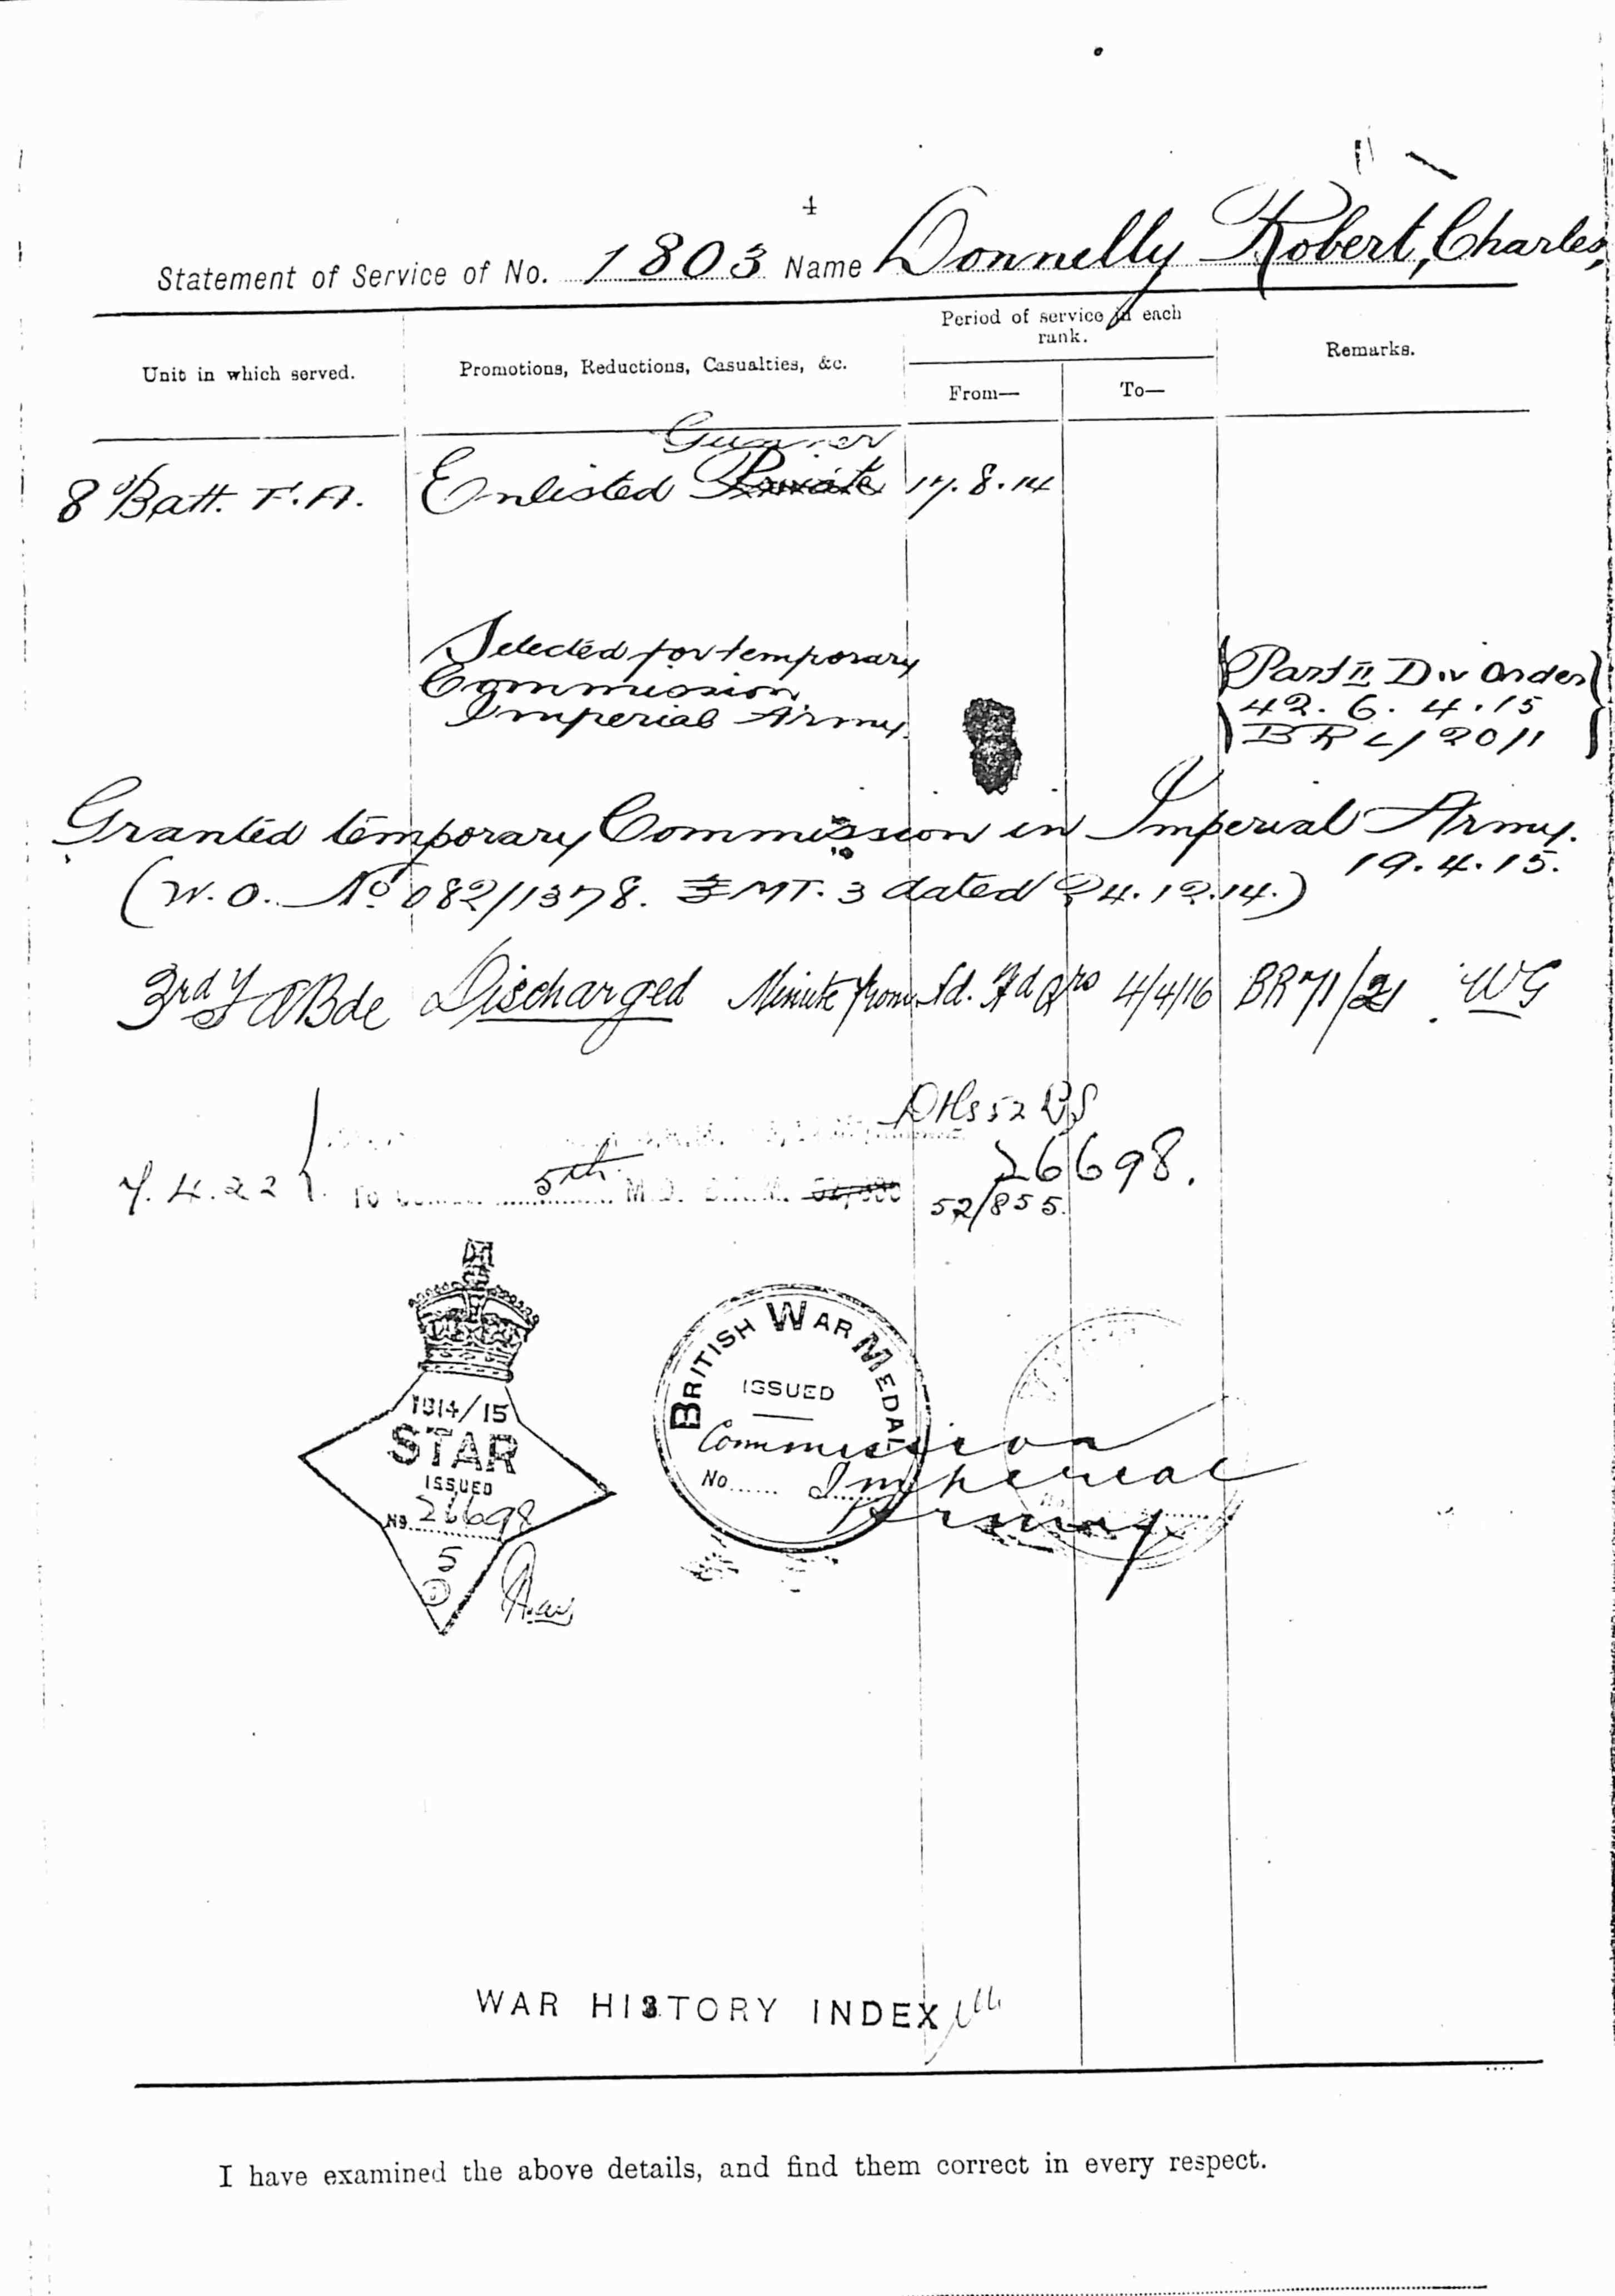 4
Statement of Service of No. 1803 Name Donnelly Robert, Charles,
Unit in which served.
Promotions, Reductions, Casualties, &c.
Period of service in each rank.
From—
To—
Remarks.
Gunner
8 Batt. F.A. Enlisted Private 17.8.14
Selected for temporary
Commission
Imperial Army.
Part II Div Order
42. 6. 4. 15
Granted temporary Commission in Imperial Army.
19.4.15.
(W.O. No 082/1378. MT. 3 dated 24.12.14.)
3rd F A Bde Discharged Minute from Hd Qrs 4/4/16 BR 71/21 WG
26698.
7.4.22 To 5th M.D.
52/855.
1914/15
STAR
ISSUED
No 26698
5
BRITISH WAR MEDAL
ISSUED
Commission
No Imperial
Army
WAR HISTORY INDEX
I have examined the above details, and find them correct in every respect.